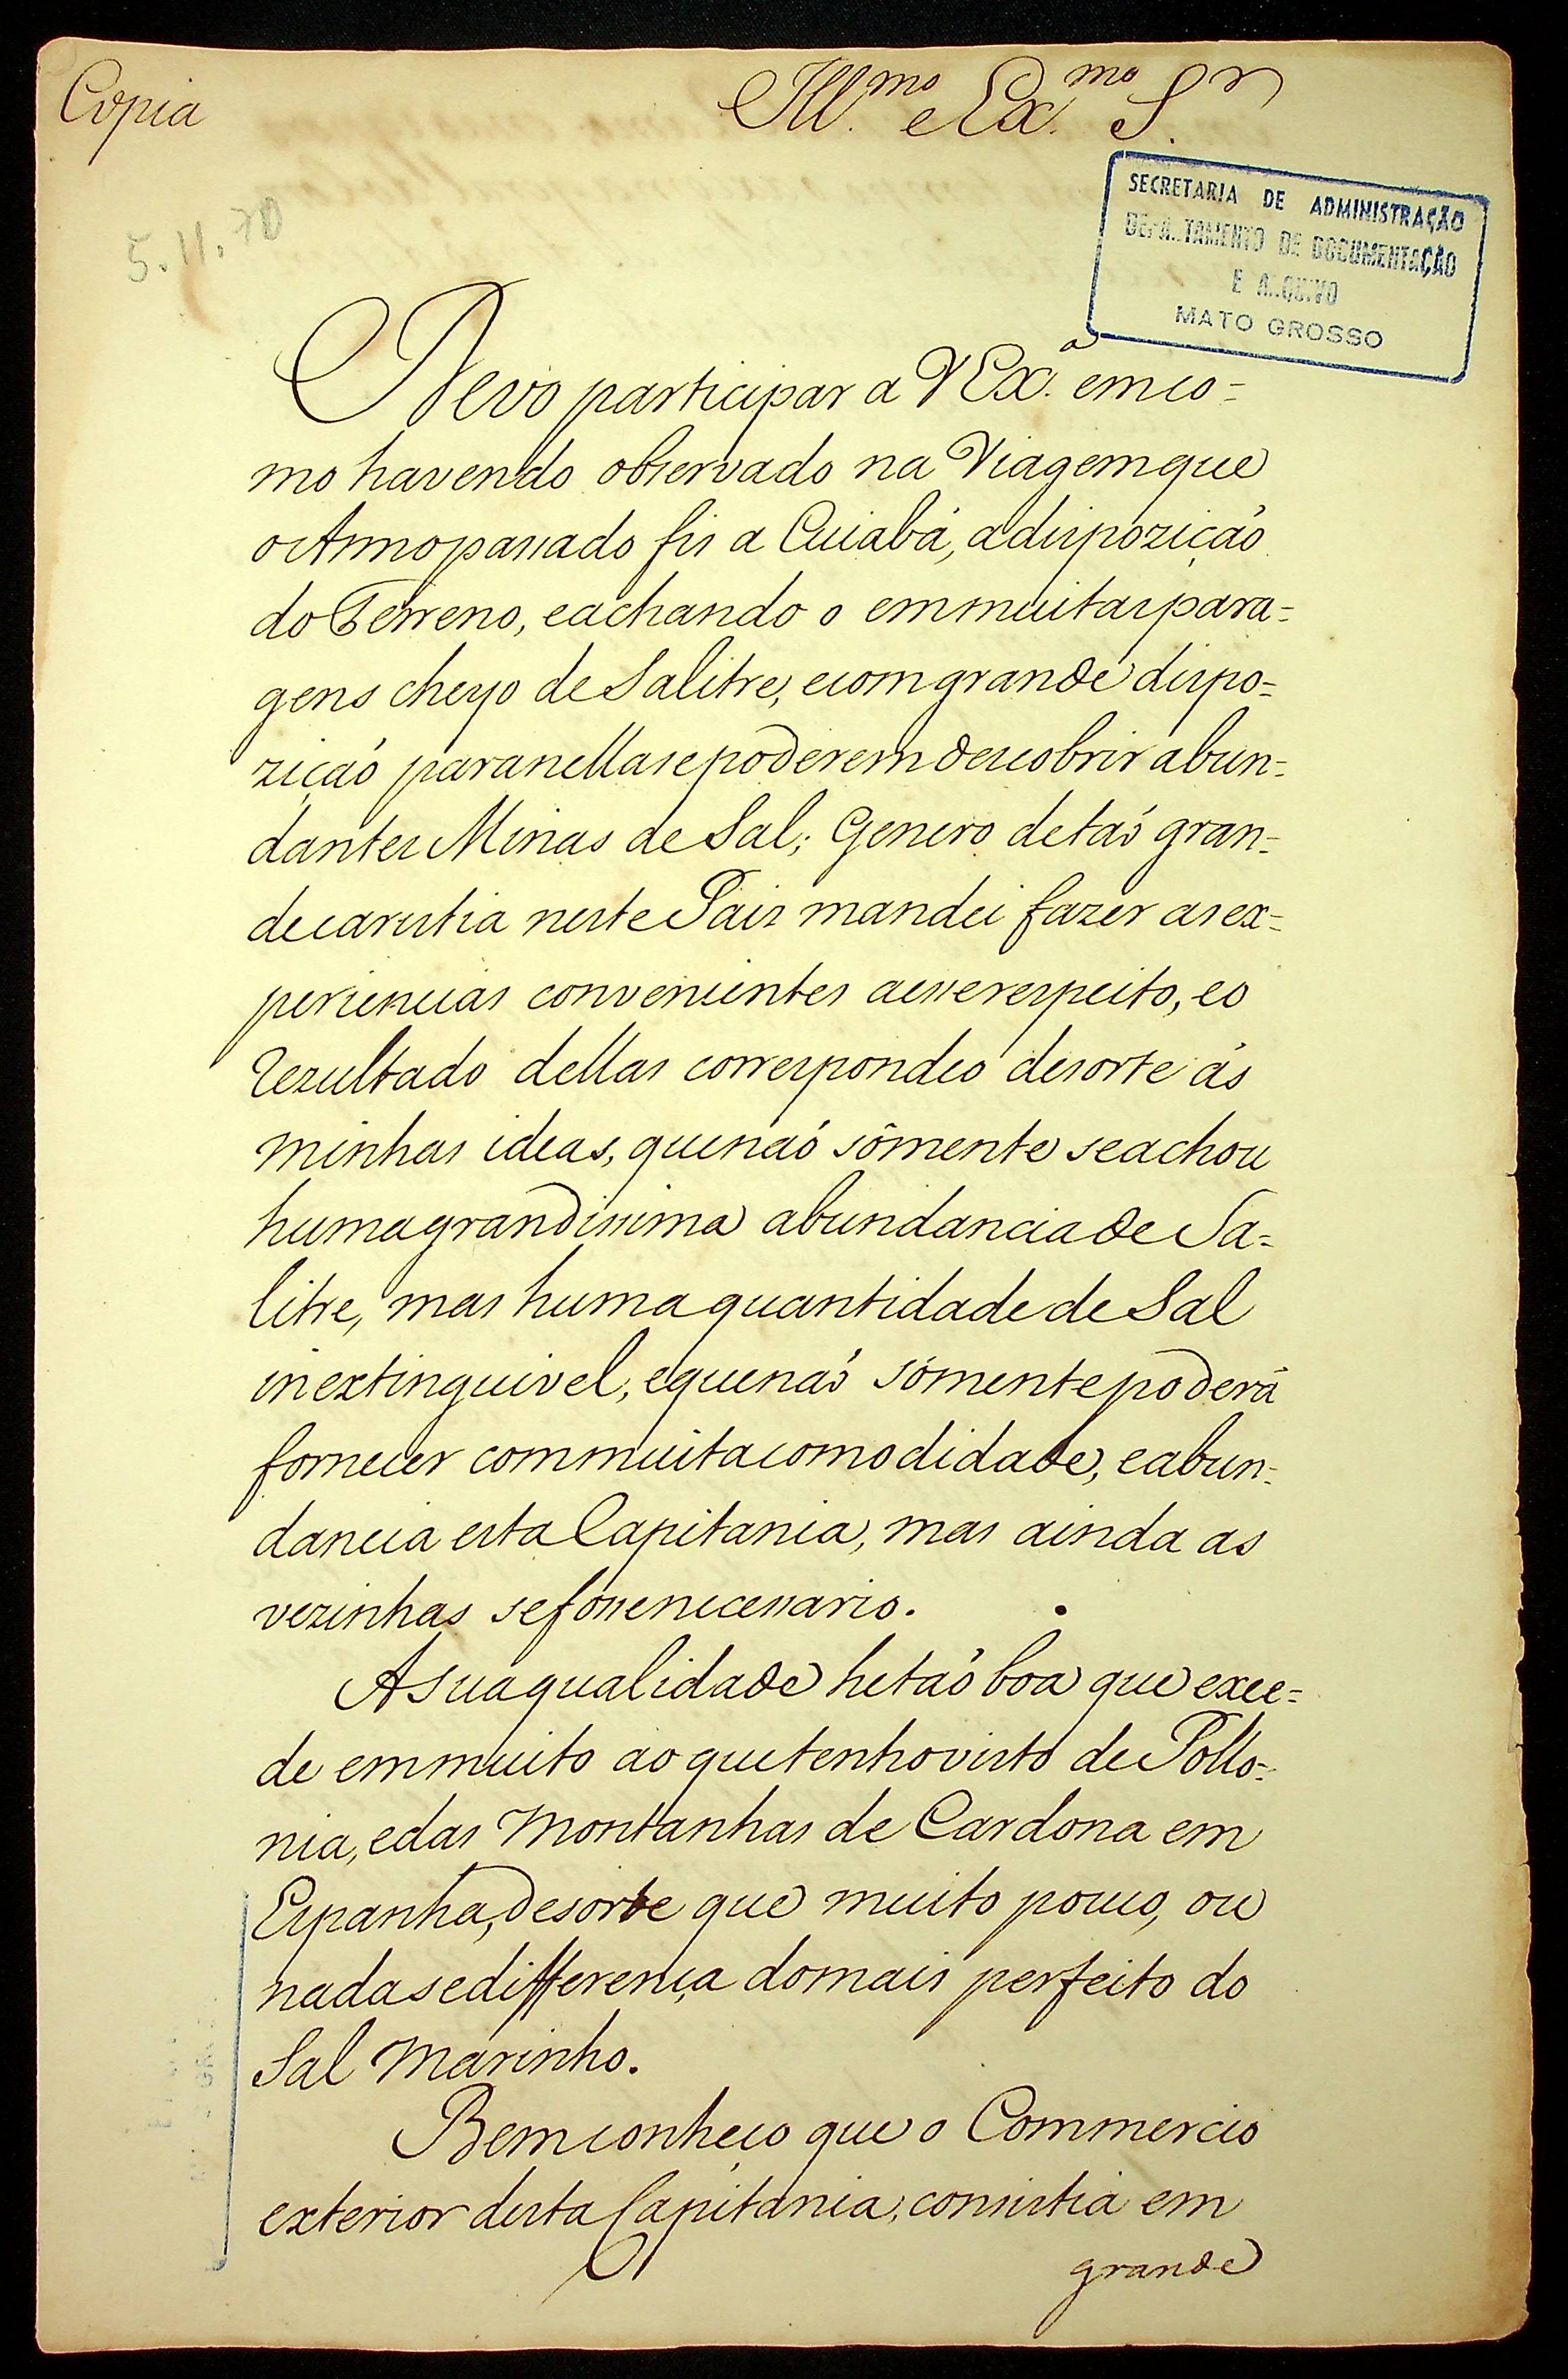 Copia
Ill.mo e Ex.mo S.r
5.11.70
SECRETARIA DE ADMINISTRAÇÃO
DEPA..TAMENTO DE DOCUMENTAÇÃO
E A..QUIVO
MATO GROSSO
Devo participar a VEx.ª em co=
mo havendo observado na Viagem que
o Anno passado fis a Cuiabá, a dispoziçaõ
do Terreno, e achando o em muitas para=
gens cheyo de Salitre, e com grande dispo=
ziçaõ para nellas se poderem descobrir abun=
dantes Minas de Sal; Genero de taõ gran=
de carestia neste Pais mandei fazer as ex=
periencias convenientes a esse respeito, e o
rezultado dellas correspondeo de sorte ás
minhas ideas, que naõ sômente se achou
huma grandissima abundancia de Sa=
litre, mas huma quantidade de Sal
inextinguivel, e que naõ sómente poderá
fornecer com muita comodidade, e abun=
dancia esta Capitania, mas ainda as
vezinhas se fosse necessario.
A sua qualidade he taõ boa que exce=
de em muito ao que tenho visto de Pollo=
nia, e das Montanhas de Cardona em
Espanha, de sorte que muito pouco, ou
nada se differença do mais perfeito do
Sal Marinho.
Bem conheço que o Commercio
exterior desta Capitania, consistia em
grande